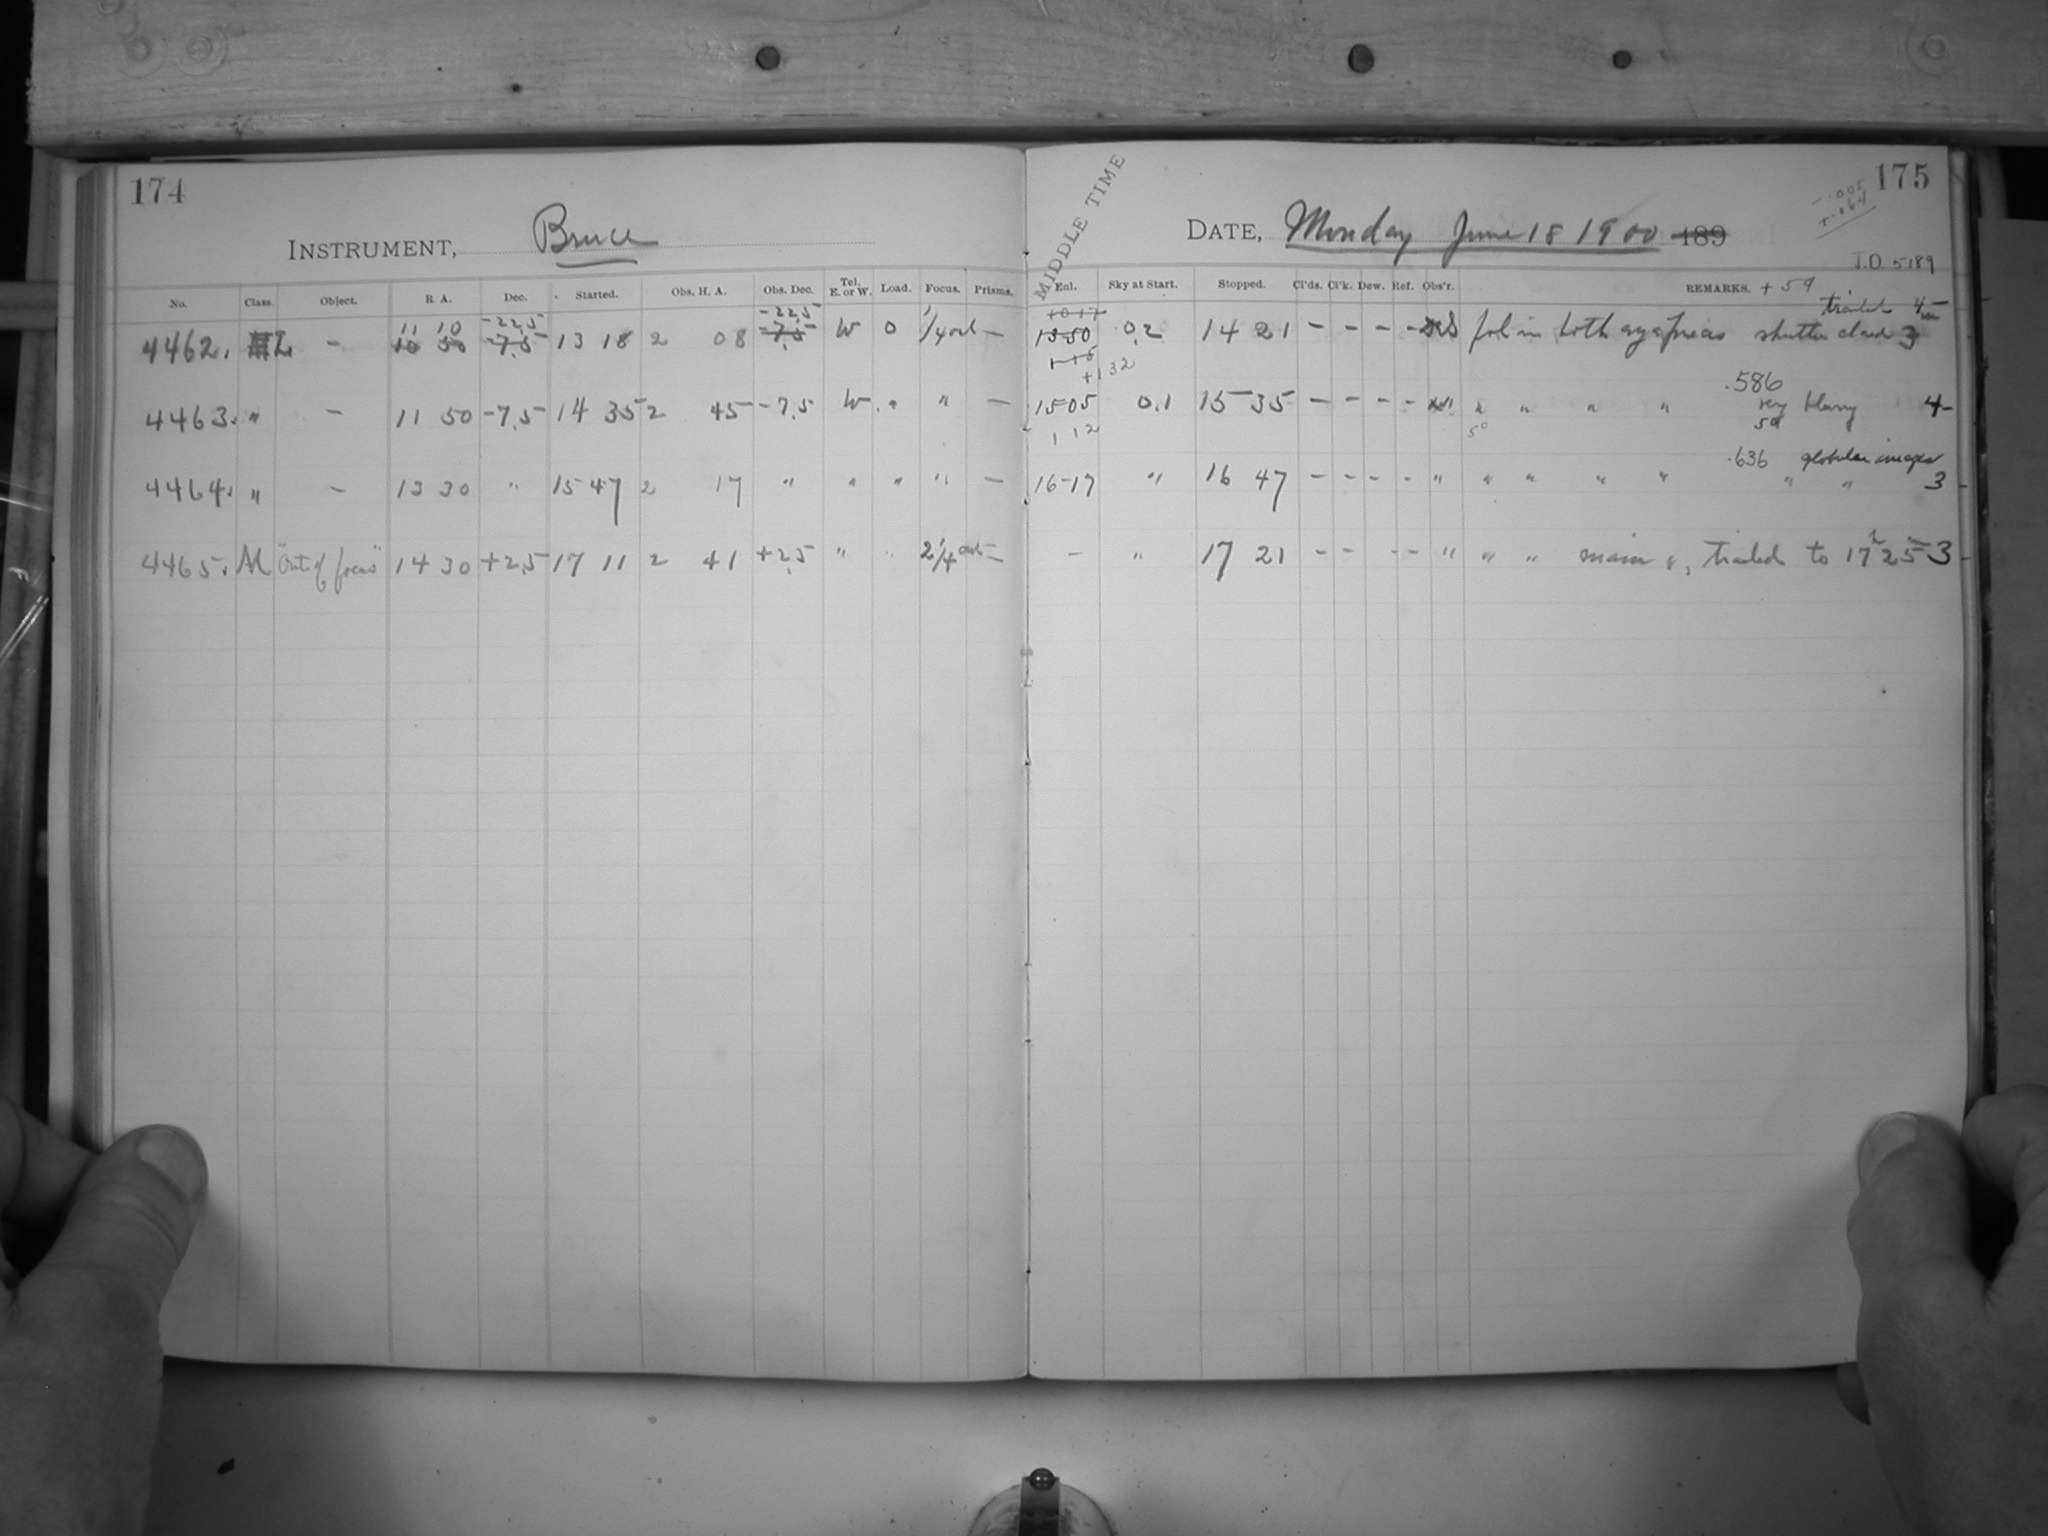 174
INSTRUMENT, Bruce
No. Class. Object. R A. Dec. Started. Obs. H. A. Obs. Dec. Tel. E. or W. Load. Focus. Prisms.
11 10 -22.5 -22.5
4462. L - 10 50 -7.5 13 18 2 08 -7.5 W 0 1/4 out -
4463. " - 11 50 -7.5 14 35 2 45 -7.5 W " " -
4464. " - 13 30 " 15 47 2 17 " " " " -
4465. M "Out of focus" 14 30 +2.5 17 11 2 41 +2.5 " " 2 1/4 out -
175
-.005
+.064
MIDDLE TIME
DATE, Monday June 18 1900 189
J.D. 5189
Eal. Sky at Start. Stopped. Cl'ds. Cl'k. Dew. Ref. Obs'r. REMARKS. + 59
+0 17 trailed 4m
13-50 0.2 14 21 - - - - fol in both shutter closed 3
1 15
+1 32
.586
15-05 0.1 15 35 - - - - " " " " very blurry 4-
1 12 50 50
.636 globular images
16-17 " 16 47 - - - - " " " " " " " 3
- " 17 21 - - - - " " " main trailed to 17h 25 3